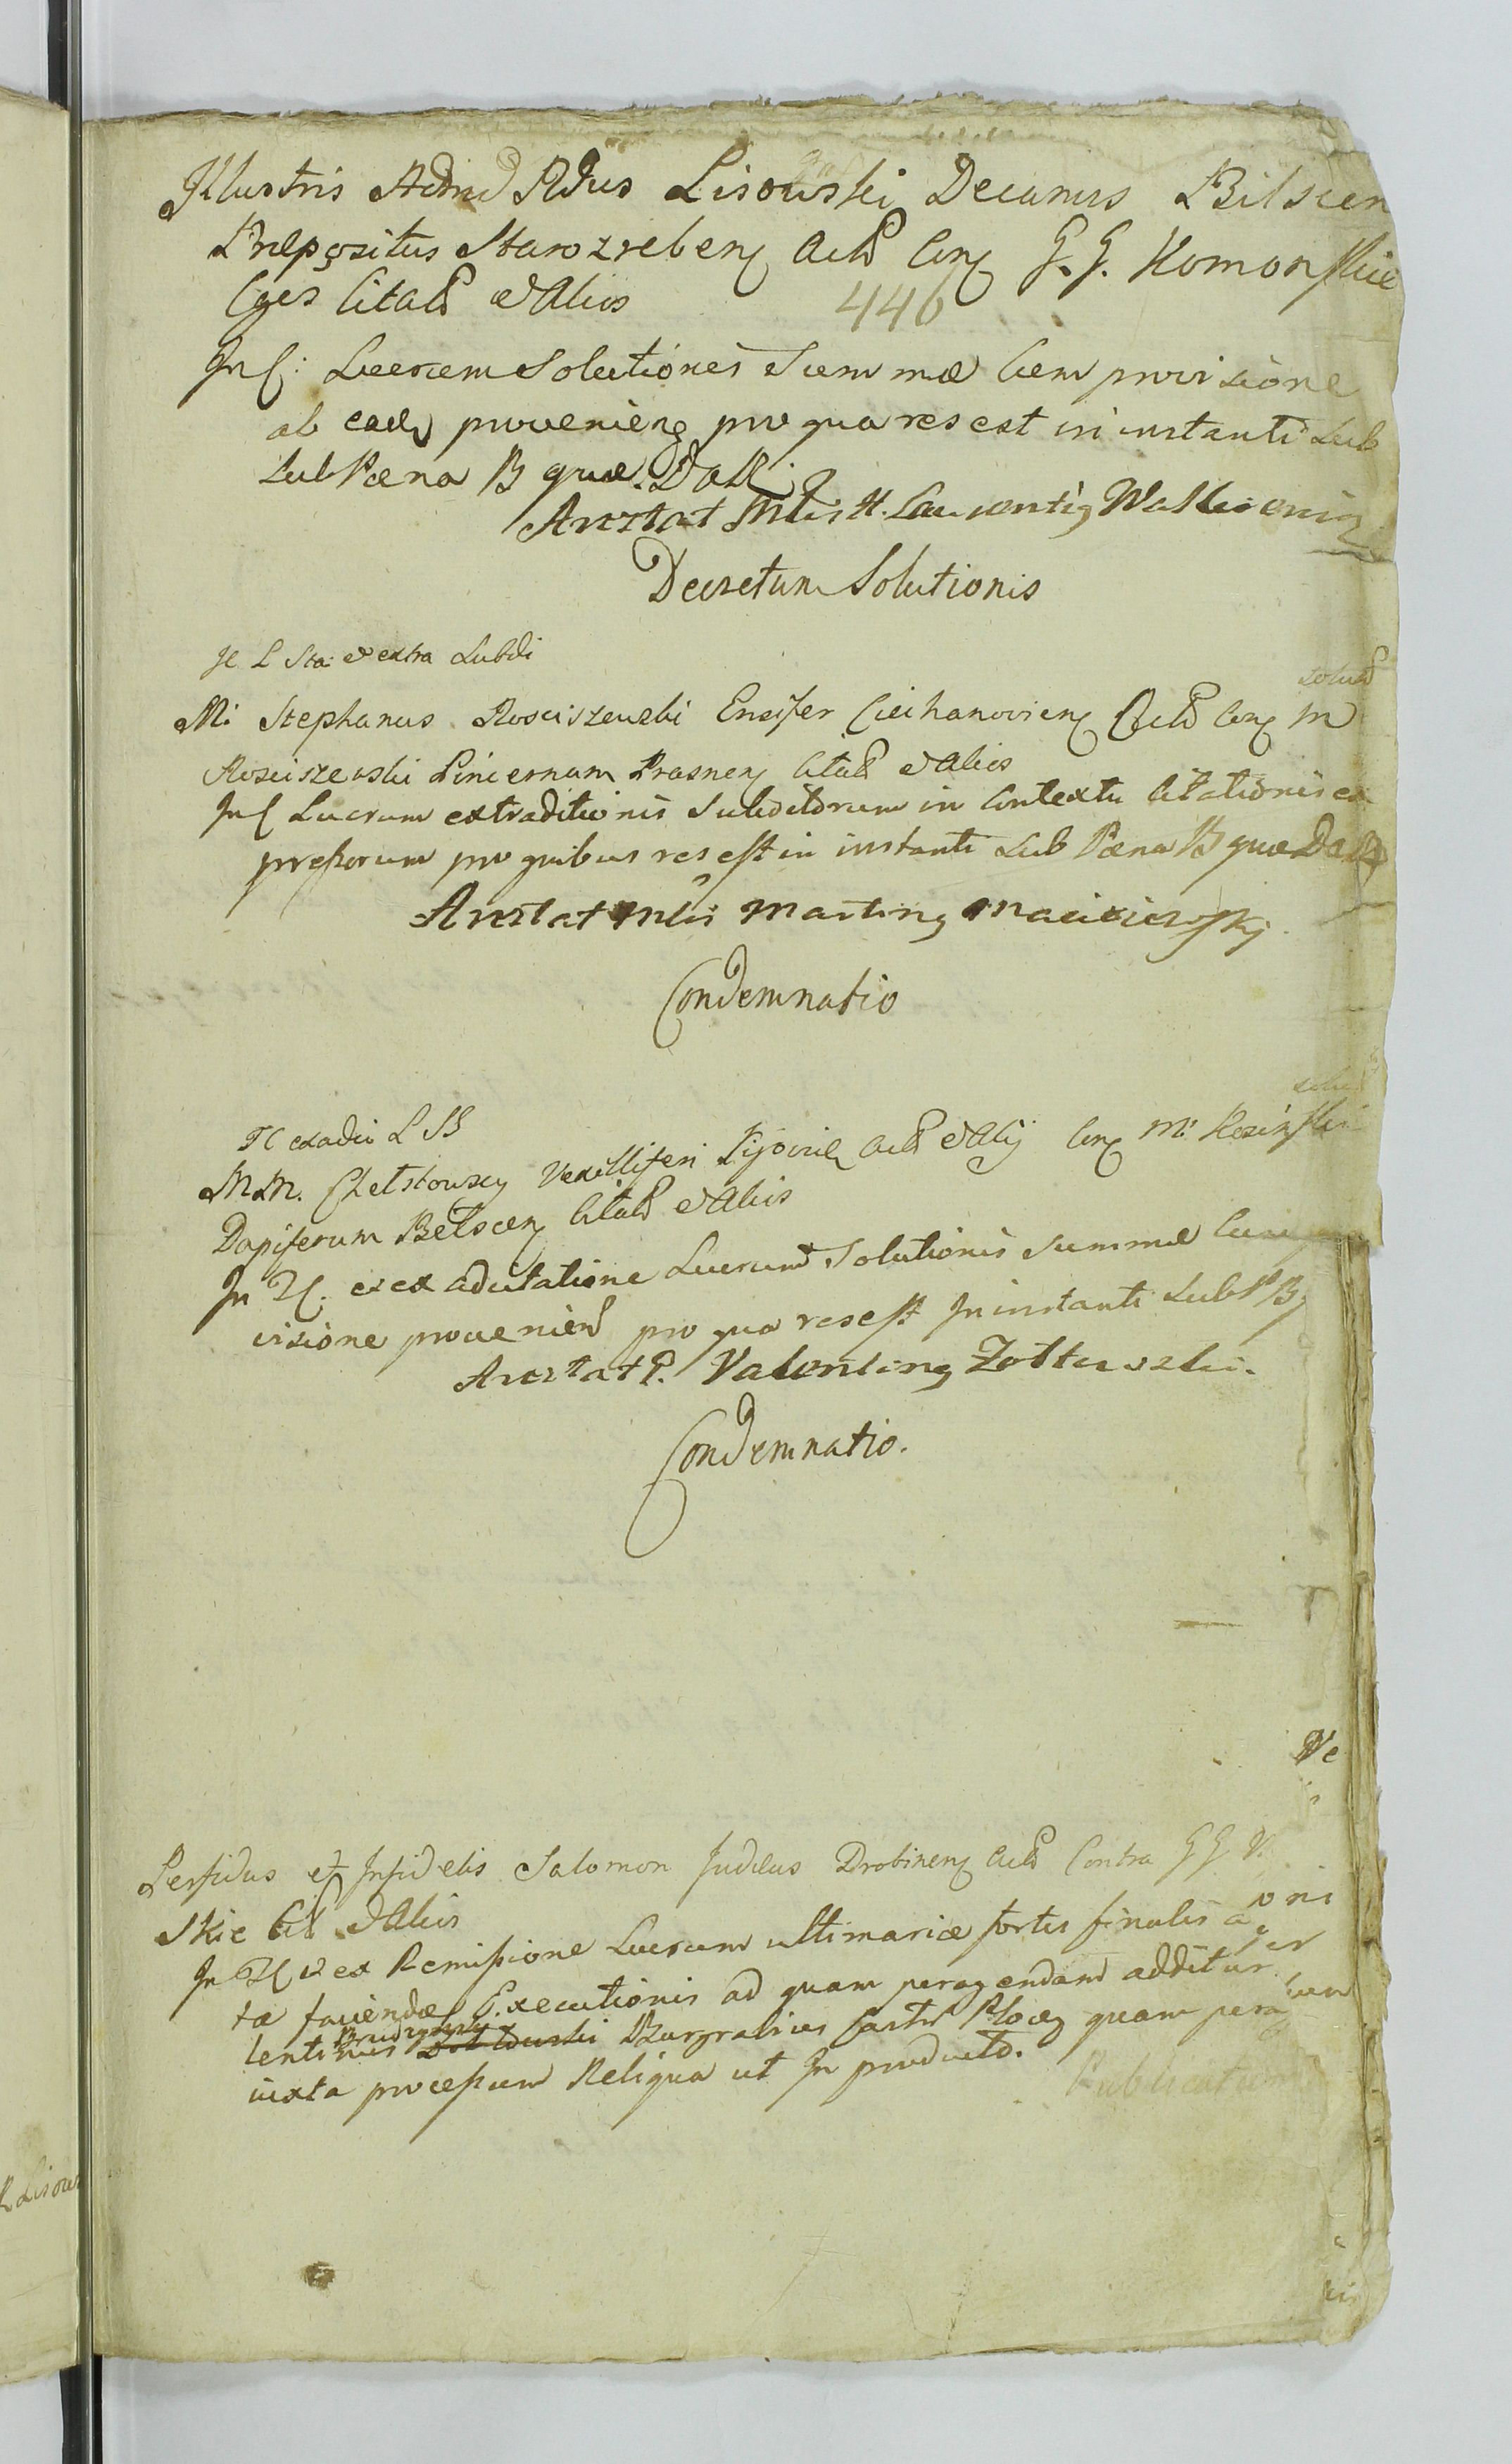 Illustris Admd Rdus Lisowski Decanus Bilscen
Præpositus Starozreben Actd Con G. G. Komonskie
Cges Citatd et Alios
446
In C: Lucrum Solutionis Summæ Cum provisione
ab eadem provenien pro qua res est in instanti sub
sub Pæna B quæ Datt
Arestat Mlis H. Laurentig
Decretum Solutionis
H L Sta: et extra Subdi
Mi Stephanus Rosciszewski Ensifer Ciechanovien Actd Con M
solutd
Rosciszewski Pincernam Prasnen Citatd et Alios
In C Lucrum extraditionis Subditorum in Contextu Citationis ex
pressorum pro quibus res est in instanti sub Pæna B quæ Datt
Arestat Mlis Marting
Condemnatio
H exadci L SS
MM. Chelstowscy Vexilliferi Kijovien Actd et Alij Con Mi
Dapiferum Belscen Citatd et Alios
In H. et ex adcitatione Lucrum Solutionis Summæ Cum
visione proveniend pro qua res est In instanti sub P B
Arestat P. Valenting Zottowski.
Condemnatio.
Ve
Perfidus et Infidelis Salomon Judæus Drobinen Actd Contra GG
skie Citd et Alios
In H et ex Remissione Lucrum ultimariæ fortis finalis a
tæ faciendæ Executionis ad quam peragendam additur
lentinus Burgrabius Castr Plocen quam pera
iuxta processum Reliqua ut In producto.
Publicatum